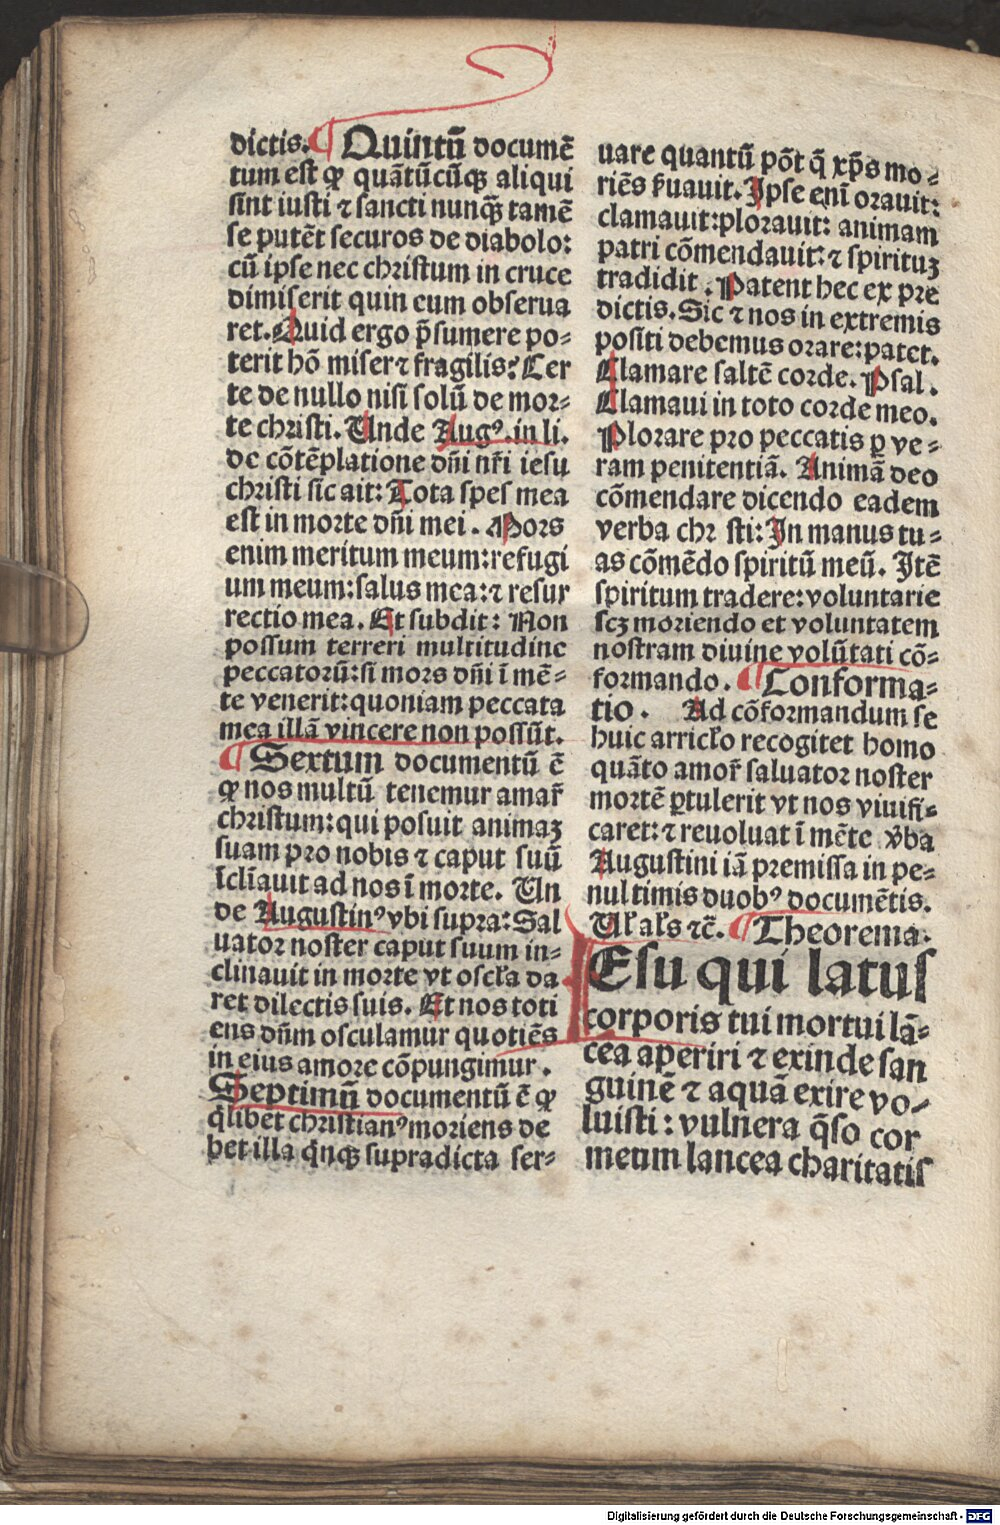 dictis. ¶ Quintū documē
tum est ꝙ quātūcūqꝫ aliqui
sint iusti ⁊ sancti nunqꝫ̄ tamē
se putēt securos de diabolo:
cū ipse nec christum in cruce
dimiserit quin eum obserua
ret. Quid ergo p̄sumere po⸗
terit hō miser ⁊ fragilis? Cer
te de nullo nisi solū de mor⸗
te christi. Unde Augꝰ. in li.
de cōtēplatione dn̄i nr̄i iesu
christi sic ait: Tota spes mea
est in morte dn̄i mei. Mors
enim meritum meum: refugi
um meum: salus mea: ⁊ resur
rectio mea. Et subdit: Non
possum terreri multitudine
peccatorū: si mors dn̄i ī mē⸗
te venerit: quoniam peccata
mea illā vincere non possūt.
¶ Sextum documentū ē
ꝙ nos multū tenemur amar̄
christum: qui posuit animaꝫ
suam pro nobis ⁊ caput suū
īcl̄iauit ad nos ī morte. Un
de Augustinꝰ vbi supra: Sal
uator noster caput suum in⸗
clinauit in morte vt oscl̄a da
ret dilectis suis. Et nos toti
ens dn̄m osculamur quotiēs
in eius amore cōpungimur.
Septimū documentū ē ꝙ
q̄libet christianꝰ moriens de
bet illa q̄nqꝫ supradicta ser⸗
uare quantū pōt q̄ xp̄s mo⸗
riēs s̄uauit. Ipse enī orauit:
clamauit: plorauit: animam
patri cōmendauit: ⁊ spirituꝫ
tradidit. Patent hec ex pre
dictis. Sic ⁊ nos in extremis
positi debemus orare: patet.
Clamare saltē corde. Psal.
Clamaui in toto corde meo.
Plorare pro peccatis ꝑ ve⸗
ram penitentiā. Animā deo
cōmendare dicendo eadem
verba chr sti: In manus tu⸗
as cōmēdo spiritū meū. Itē
spiritum tradere: voluntarie
scꝫ moriendo et voluntatem
nostram diuine volūtati cō⸗
formando. ¶ Conforma⸗
tio. Ad cōformandum se
huic arricl̄o recogitet homo
quāto amor̄ saluator noster
mortē ꝑtulerit vt nos viuifi⸗
caret: ⁊ reuoluat ī mēte v̄ba
Augustini iā premissa in pe⸗
nultimis duobꝰ documētis.
Ul̄ al̄s ⁊c̄. ¶ Theorema.
IEsu qui latus
corporis tui mortui lā⸗
cea aperiri ⁊ exinde san
guinē ⁊ aquā exire vo⸗
luisti: vulnera q̄so cor
meum lancea charitatis
Digitalisierung gefördert durch die Deutsche Forschungsgemeinschaft - DFG